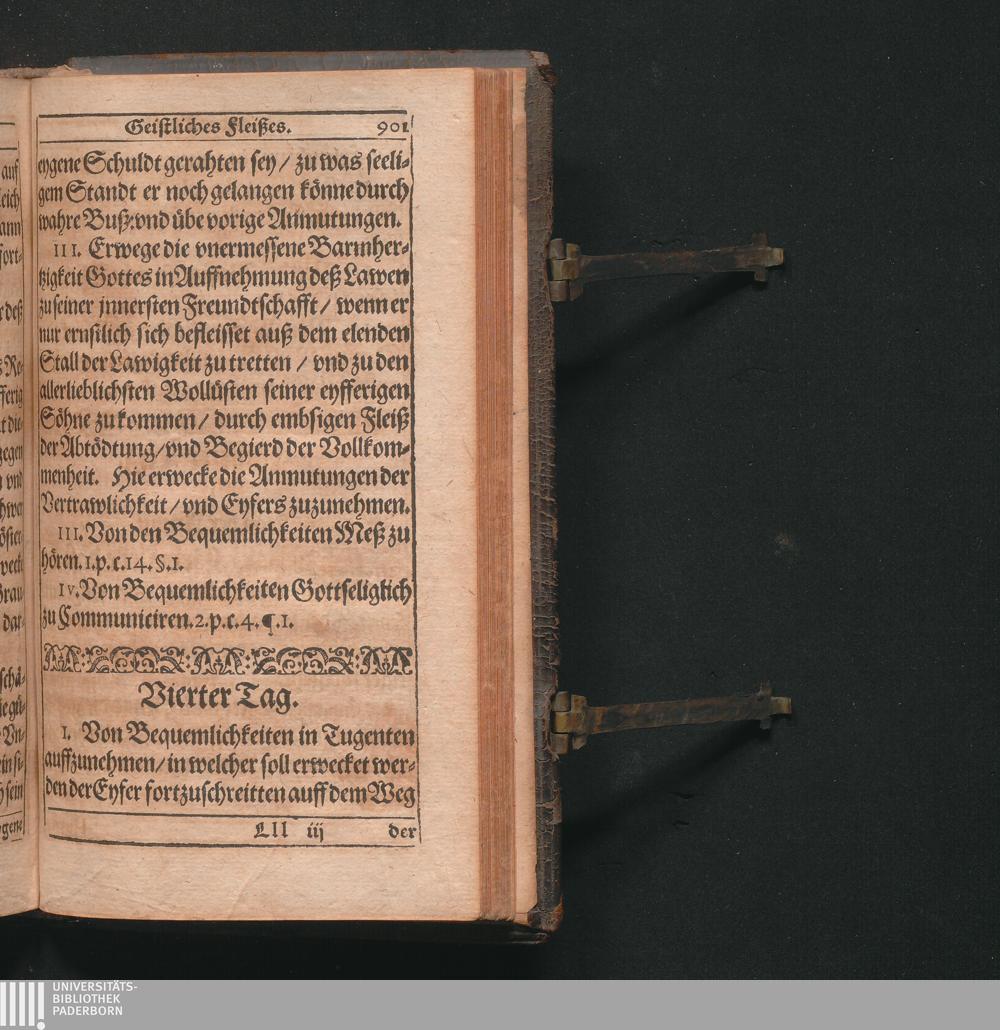 Geistliches Fleißes. 901
eygene Schuldt gerahten sey / zu was seeli-
gem Standt er noch gelangen könne durch
wahre Buß: vnd übe vorige Anmutungen.
III. Erwege die vnermessene Barmher-
tzigkeit Gottes in Auffnehmung deß Lawen
zu seiner jnnersten Freundtschafft / wenn er
nur ernstlich sich befleisset auß dem elenden
Stall der Lawigkeit zu tretten / vnd zu den
allerlieblichsten Wollüsten seiner eyfferigen
Söhne zu kommen / durch embsigen Fleiß
der Abtödtung / vnd Begierd der Vollkom-
menheit. Hie erwecke die Anmutungen der
Vertrawlichkeit / vnd Eyfers zuzunehmen.
III. Von den Bequemlichkeiten Meß zu
hören. 1. p. c. 14. §. 1.
IV. Von Bequemlichkeiten Gottseliglich
zu Communiciren. 2. p. c. 4. ¶. 1.
Vierter Tag.
I. Von Bequemlichkeiten in Tugenten
auffzunehmen / in welcher soll erwecket wer-
den der Eyfer fortzuschreitten auff dem Weg
Lll iij der
auf
leich
ann
fort-
deß
fferig
vnd
dar-
sein
UNIVERSITÄTS-
BIBLIOTHEK
PADERBORN